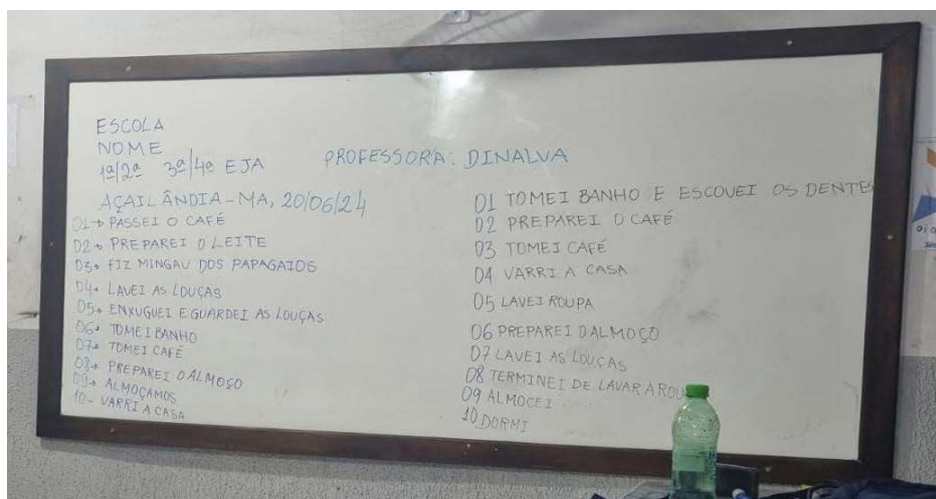 ESCOLA
NOME
1ª/2ª 3ª/4ª EJA PROFESSORA: DINALVA
AÇAILÂNDIA-MA, 20/06/24
01→ PASSEI O CAFÉ
02→ PREPAREI O LEITE
03→ FIZ MINGAU DOS PAPAGAIOS
04→ LAVEI AS LOUÇAS
05→ ENXUGUEI E GUARDEI AS LOUÇAS
06→ TOMEI BANHO
07→ TOMEI CAFÉ
08→ PREPAREI O ALMOSO
09→ ALMOÇAMOS
10- VARRI A CASA
01 TOMEI BANHO E ESCOVEI OS DENTES
02 PREPAREI O CAFÉ
03 TOMEI CAFÉ
04 VARRI A CASA
05 LAVEI ROUPA
06 PREPAREI O ALMOÇO
07 LAVEI AS LOUÇAS
08 TERMINEI DE LAVAR A
09 ALMOCEI
10 DORMI